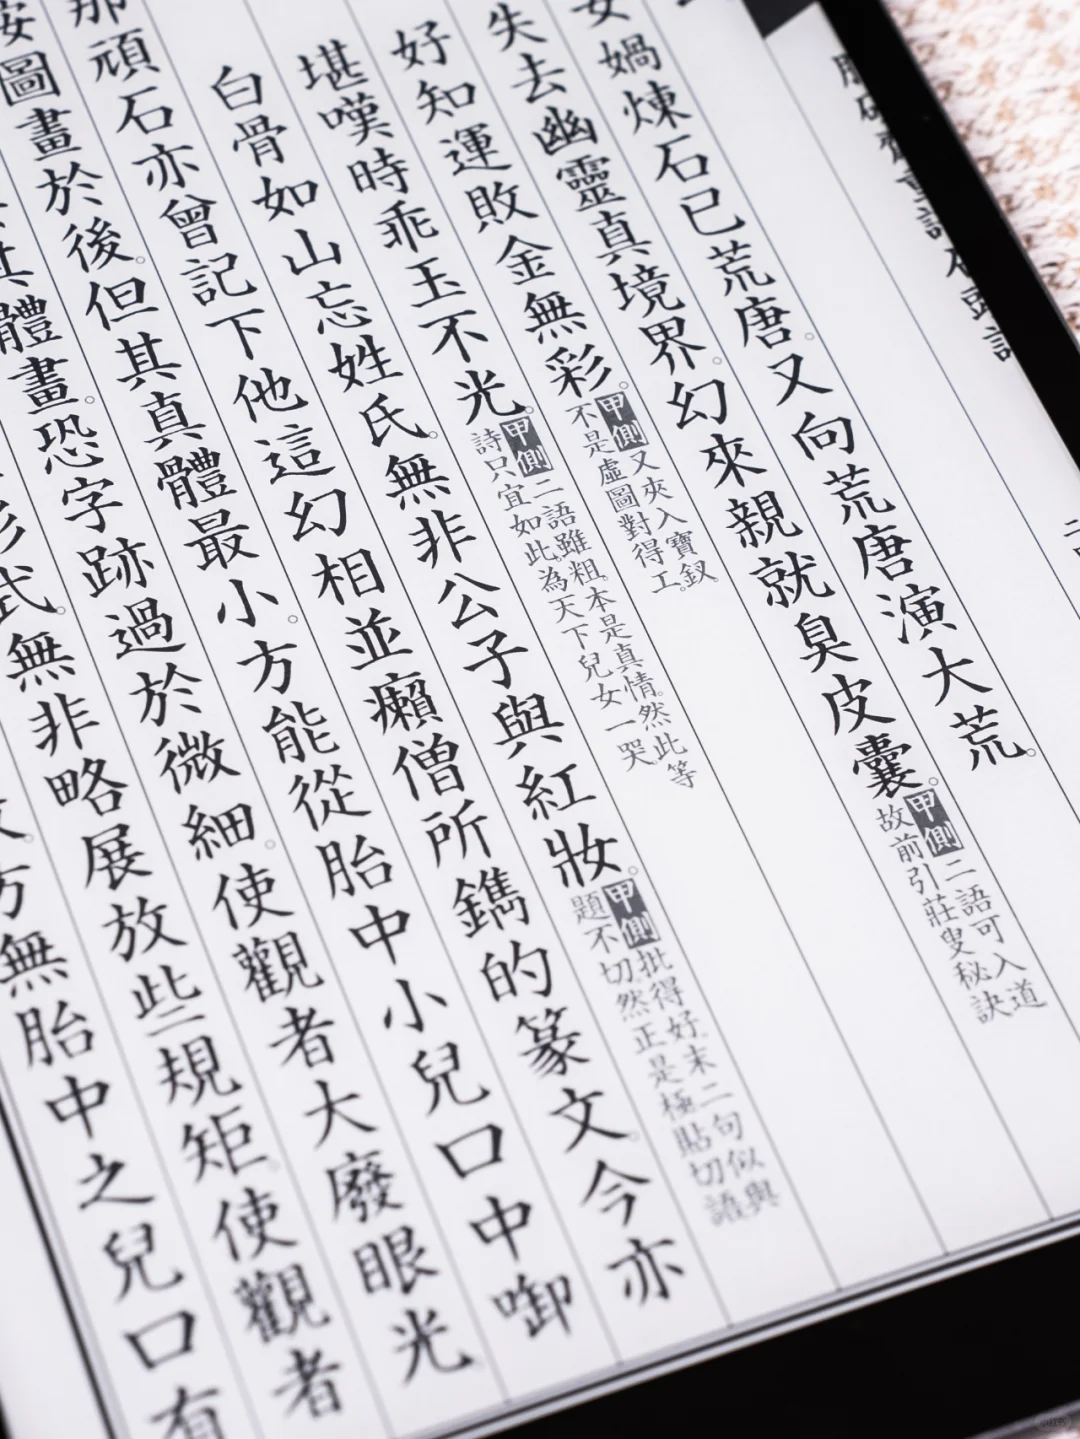 脂硯齋重評石頭記
女媧煉石已荒唐。又向荒唐演大荒。
失去幽靈真境界。幻來親就臭皮囊。甲側
二語可入道
故前引莊叟秘訣
好知運敗金無彩。甲側
又夾入寶釵
不是虛圖對得工。
堪嘆時乖玉不光。甲側
二語雖粗。本是真情。然此等
詩只宜如此。為天下兒女一哭。
白骨如山忘姓氏。無非公子與紅妝。甲側
批得好。末二句似與
題不切。然正是極貼切語
那頑石亦曾記下他這幻相並癩僧所鐫的篆文。今亦
按圖畫於後。但其真體最小。方能從胎中小兒口中啣
其體畫。恐字跡過於微細。使觀者大廢眼光
式。無非略展放些規矩。使觀者
方無胎中之兒口有